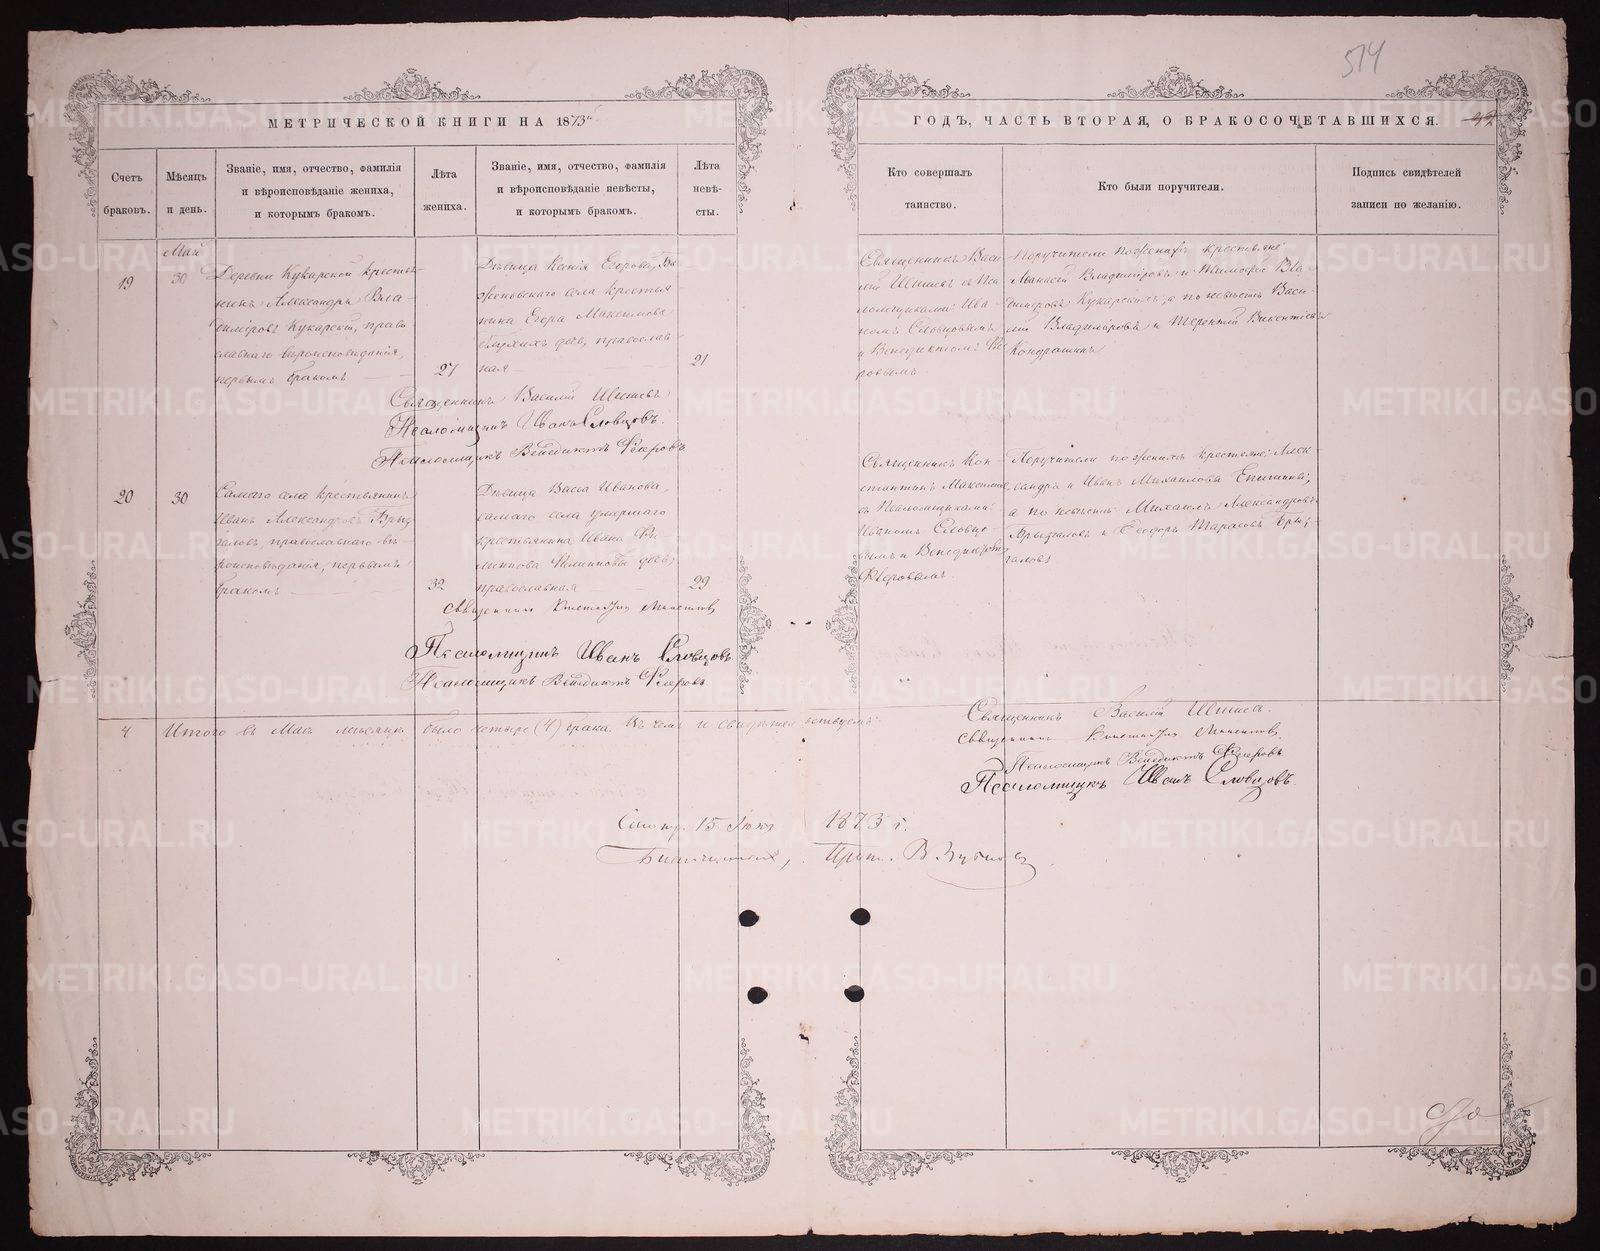 514
МЕТРИЧЕСКОЙ КНИГИ НА 1873й
ГОДЪ, ЧАСТЬ ВТОРАЯ, О БРАКОСОЧЕТАВШИХСЯ.
Счетъ браковъ.
Мѣсяцъ и день.
Званіе, имя, отчество, фамилія
и вѣроисповѣданіе жениха,
и которымъ бракомъ.
Лѣта жениха.
Званіе, имя, отчество, фамилія
и вѣроисповѣданіе невѣсты,
и которымъ бракомъ.
Лѣта невѣ-
сты.
Кто совершалъ
таинство.
Кто были поручители.
Подпись свидѣтелей
записи по желанію.
19
Май
30
Деревни Кукарской крестья-
нинъ Александръ Вла-
диміровъ Кукарскій, право-
славнаго вѣроисповѣданія,
первымъ бракомъ
27
Дѣвица Ксенія Егорова,
села крестья-
нина Егора Максимова
дочь, православ-
ная
21
Священникъ Васи-
лій Шишевъ съ Пса-
ломщиками: Ива-
номъ Словцовымъ
и Венедиктомъ Фле-
ровымъ
Поручители по женихѣ крестьяне
Аѳанасій Владиміровъ и Тимофей Вла-
диміровъ Кукарскіе, а по невѣстѣ Васи-
лій Владиміровъ и Терентій Викентіевъ
Кондрашинъ
Священникъ Василій Шишевъ
Псаломщикъ Иванъ Словцовъ.
Псаломщикъ Венедиктъ Флеровъ
20
30
Самаго села крестьянинъ
Иванъ Александровъ Брыз-
галовъ, православнаго вѣ-
роисповѣданія, первымъ
бракомъ
32
Дѣвица Васса Иванова,
самаго села умершаго
крестьянина Ивана Фи-
липпова дочь,
православная
29
Священникъ Кон-
стантинъ
съ Псаломщиками:
Иваномъ Словцо-
вымъ и Венедиктомъ
Флеровымъ.
Поручители по женихѣ крестьяне: Алек-
сандръ и Иванъ Михаиловы Епишины;
а по невѣстѣ Михаилъ Александровъ
Брызгаловъ и Ѳеодоръ Тарасовъ Брыз-
галовъ
Священникъ Константинъ
Псаломщикъ Иванъ Словцовъ.
Псаломщикъ Венедиктъ Флеровъ.
4
Итого въ Маѣ мѣсяцѣ было четыре (4) брака. Въ чемъ и свидѣтельствуемъ:
Священникъ Василій Шишевъ.
Священникъ Константинъ
Псаломщикъ Венедиктъ Флеровъ
Псаломщикъ Иванъ Словцовъ.
15 Іюня 1873 г.
METRIKI.GASO-URAL.RU